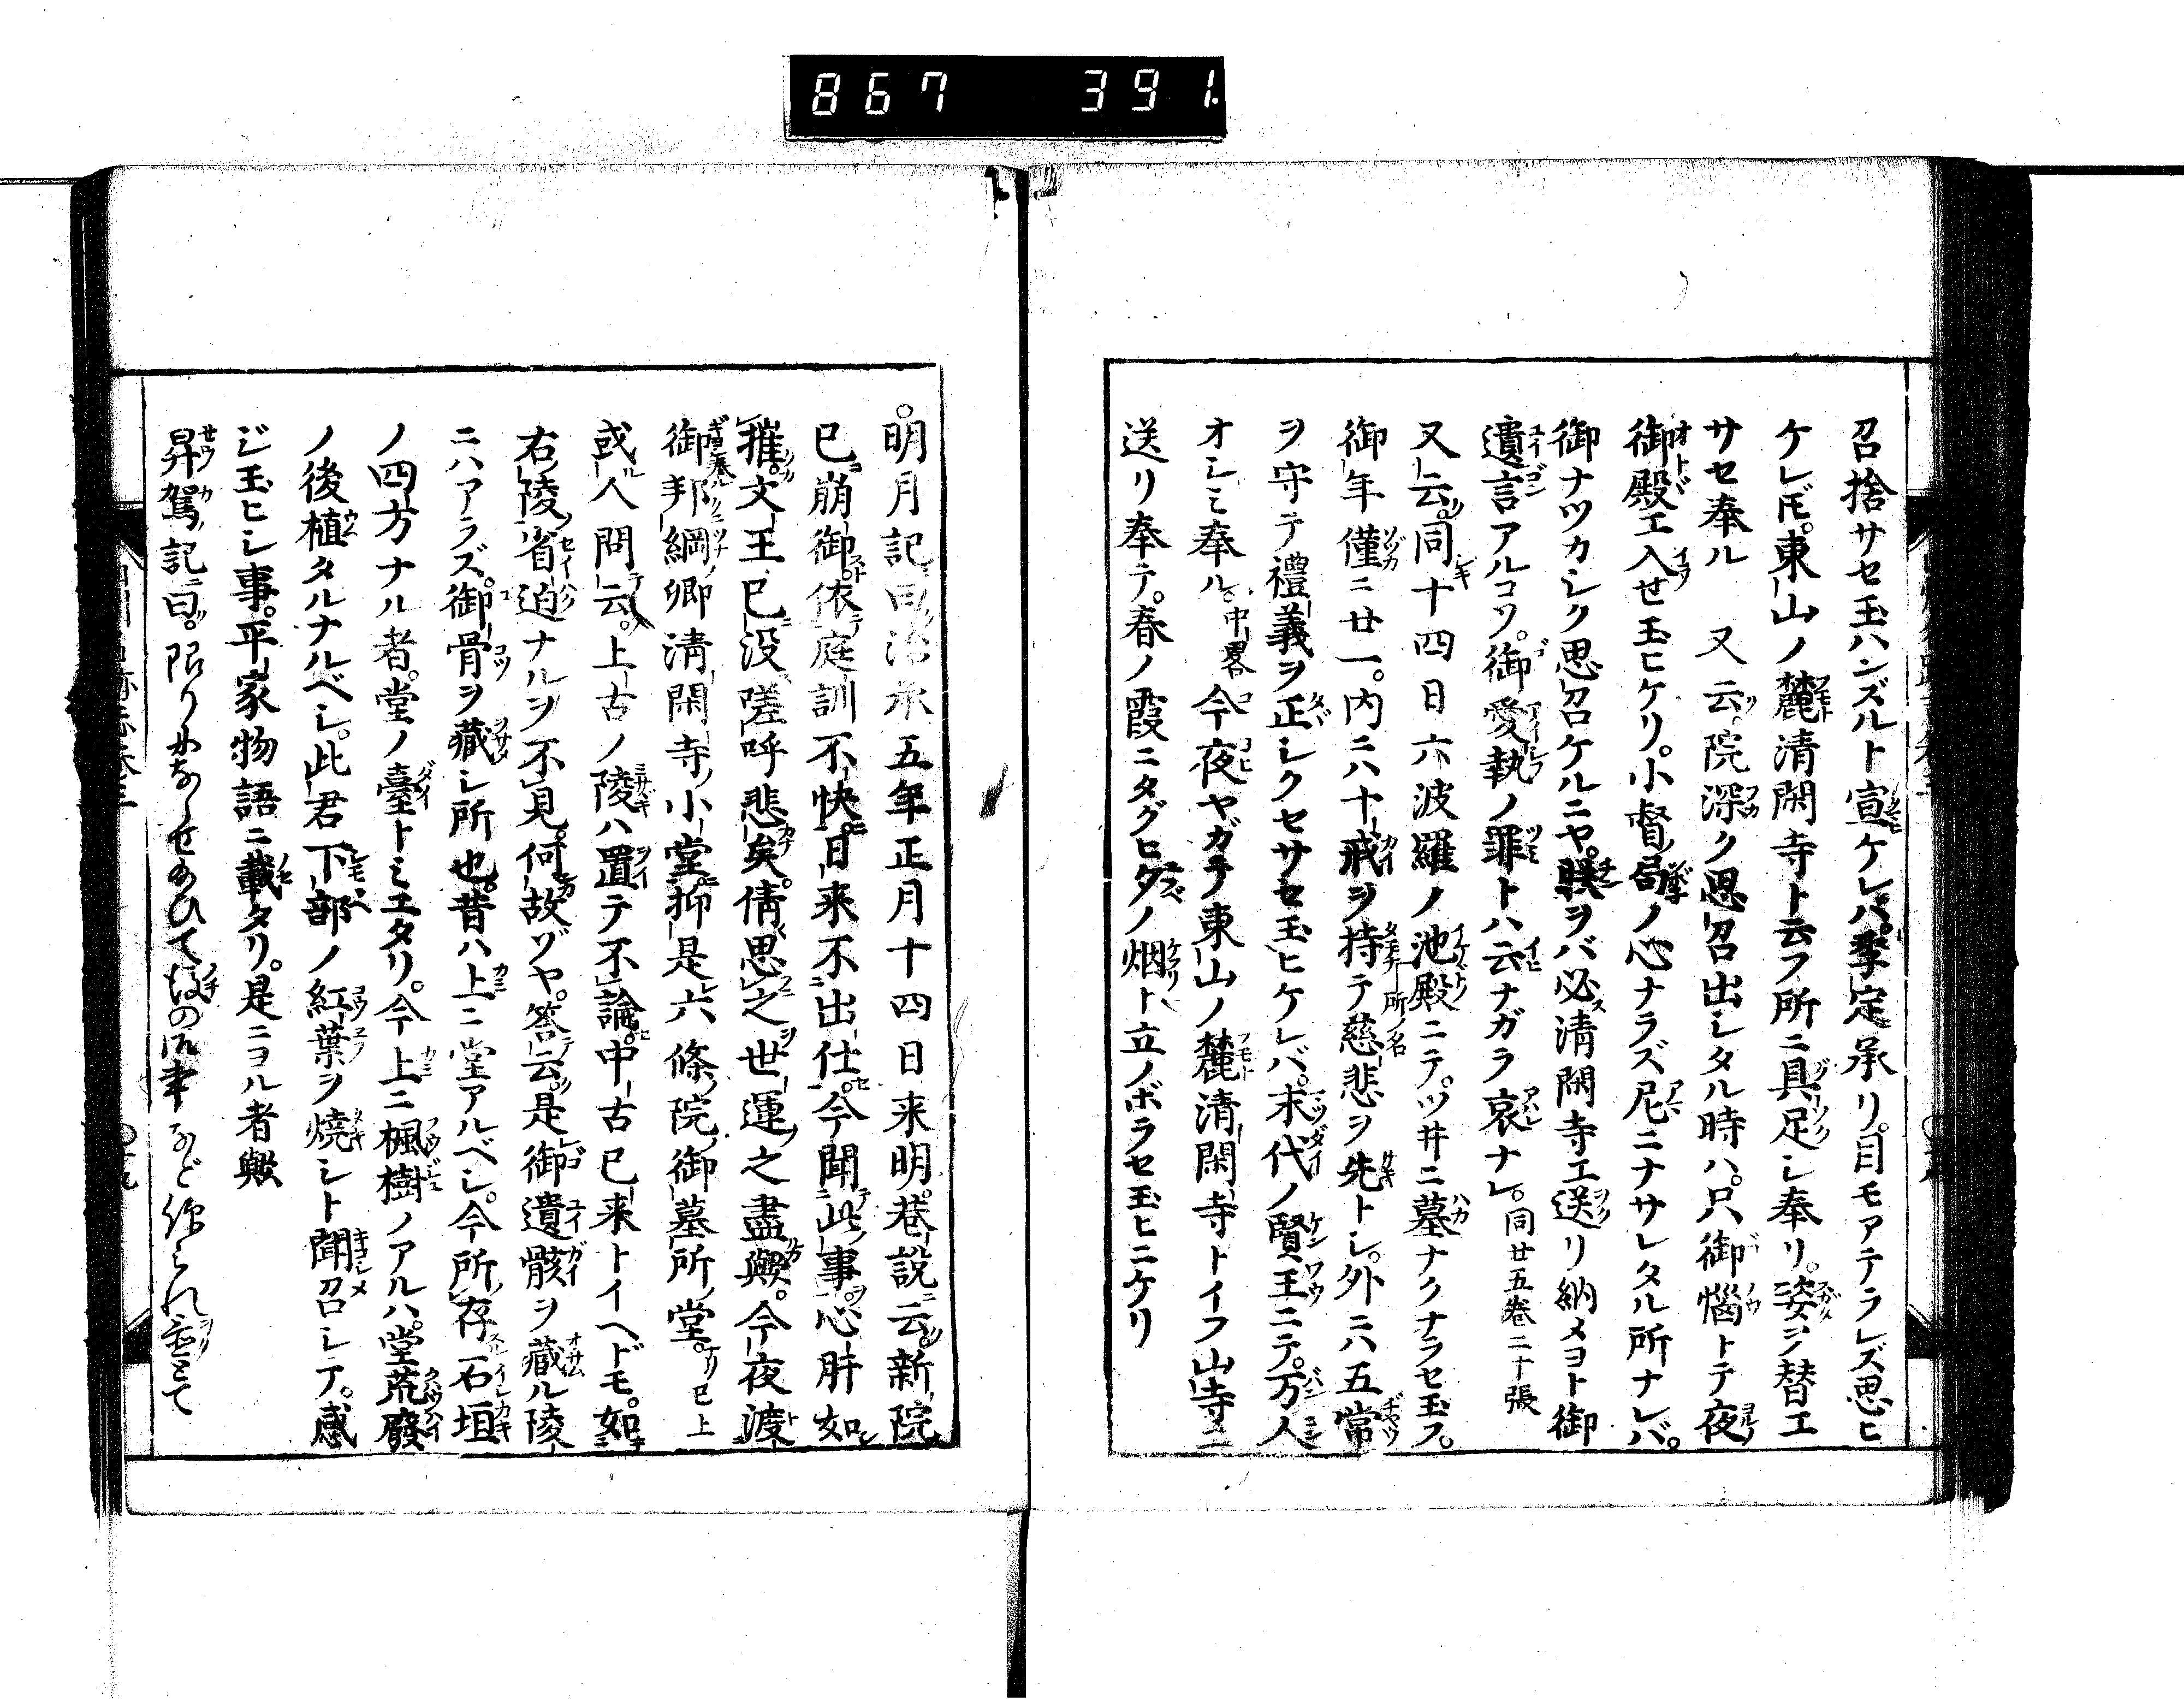 867 391
召捨サセ玉ハンズルト宣ケレバ。季定承リ。目モアテラレズ思ヒ
ケレ𪜈。東山ノ麓清閑寺ト云フ所ニ具足シ奉リ。姿ヲ替エ
サセ奉ル 又云。院深ク思召出シタル時ハ。只御惱トテ夜
御殿エ入セ玉ヒケリ。小督局ノ心ナラズ尼ニナサレタル所ナレバ。
御ナツカシク思召ケルニヤ。朕ヲバ必清閑寺エ送リ納メヨト御
遺言アルコソ。御愛執ノ罪トハ云ナガラ哀ナレ。同廿五巻二十張
又云。同十四日六波羅ノ池殿所ノ名ニテ。ツ井ニ墓ナクナラセ玉フ。
御年僅ニ廿一。内ニハ十戒ヲ持テ慈悲ヲ先トシ。外ニハ五常
ヲ守テ禮義ヲ正シクセサセ玉ヒケレバ。末代ノ賢王ニテ。万人
オシミ奉ル。中畧今夜ヤガテ東山ノ麓清閑寺トイフ山寺ニ
送リ奉テ。春ノ霞ニタグヒ夕ノ烟ト立ノボラセ玉ヒニケリ
○明月記曰治承五年正月十四日来明。巷説云。新院
已崩御。依庭訓不快日来不出仕。今聞此事。心肝如
摧。文王已没嗟呼悲矣。倩思之世運之盡歟。今夜渡
御邦綱卿清閑寺小堂。抑是六條院御墓所堂。已上
或人問云。上古ノ陵ハ置テ不論。中古已来トイヘドモ。如
右陵省迫ナルヲ不見。何故ゾヤ。答云。是御遺骸ヲ藏ル陵
ニハアラズ。御骨ヲ藏シ所也。昔ハ上ニ堂アルベシ。今所存石垣
ノ四方ナル者。堂ノ臺トミエタリ。今上ニ楓樹ノアルハ。堂荒廢
ノ後植タルナルベシ。此君下部ノ紅葉ヲ燒シト聞召シテ。感
ジ玉ヒシ事。平家物語ニ載タリ。是ニヨル者歟
昇駕記曰。限りかなしせ給ひて後の御事など仰られをとて